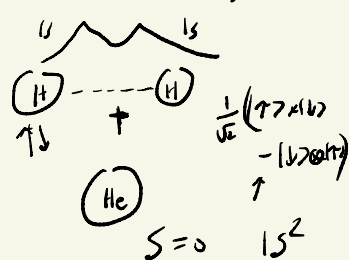 1s 1s
H H
↑↓ +
1/√2 (|↑>⊗|↓>
- |↓>⊗|↑>)
↑
He
S=0 1S²